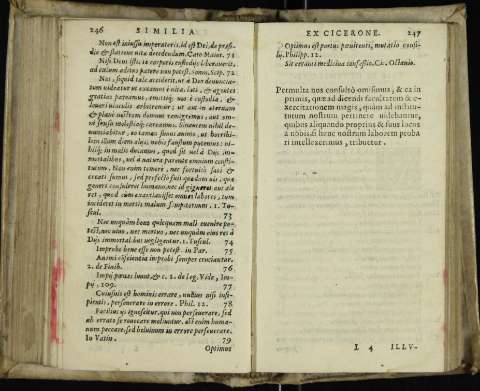 246 SIMILIA
Non est iniussu imperatoris, id est Dei, de præsi-
dio & statione vitæ decedendum. Cato Maior. 71
Nisi Deus istis te corporis custodijs liberauerit,
ad cælum aditus patere non potest. Somn. Scip. 72
Nos, si quid tale acciderit, ut à Deo denuncia-
tum videatur ut exeamus è vita, læti, & agentes
gratias pareamus, emittiq; nos è custodia, &
leuari vinculis arbitremur; ut aut in æternam
& planè nostram domum remigremus, aut om-
ni sensu molestiaq; careamus. Sin autem nihil de-
nunciabitur, eo tamen simus animo, ut horribi-
lem illum diem alijs, nobis faustum putemus: ni-
hilq; in malis ducamus, quod sit vel à Dijs im-
mortalibus, vel à natura parente omnium consti-
tutum. Non enim temere, nec fortuitò sati &
creati sumus, sed profectò fuit quædam vis, quæ
generi consuleret humano, nec id gigneret aut ale
ret, quod cùm exantlauisset omnes labores, tum
incideret in mortis malum sempiternum. 1. Tu-
scul. 73
Nec unquam bono quicquam mali euenire po-
test, nec viuo, nec mortuo, nec unquam eius res à
Dijs immortalibus negligentur. 1. Tuscul. 74
Improbo bene esse non potest. in Par. 75
Animi cõscientia improbi semper cruciantur.
2. de Finib. 76
Impij pœnas luunt, & c. 2. de Leg. Vide, Im-
pij. 109. 77
Cuiusuis est hominis errare, nullius nisi insi-
pientis, perseuerare in errore. Phil. 12. 78
Parthus
In Vatin. 79
Optimus
EX CICERONE. 247
Optimus est portus pœnitenti, mutatio consi-
lij. Philipp. 12.
Sit erranti medicina confessio. Ci. Octauio.
Permulta nos consultò omisimus, & ea in
primis, quæ ad dicendi facultatem & e-
xercitationem magis, quàm ad institu-
tum nostrum pertinere videbantur,
quibus aliquando proprius & suus locus
à nobis, si hunc nostrum laborem proba
ri intellexerimus, tribuetur.
L 4 ILLV-